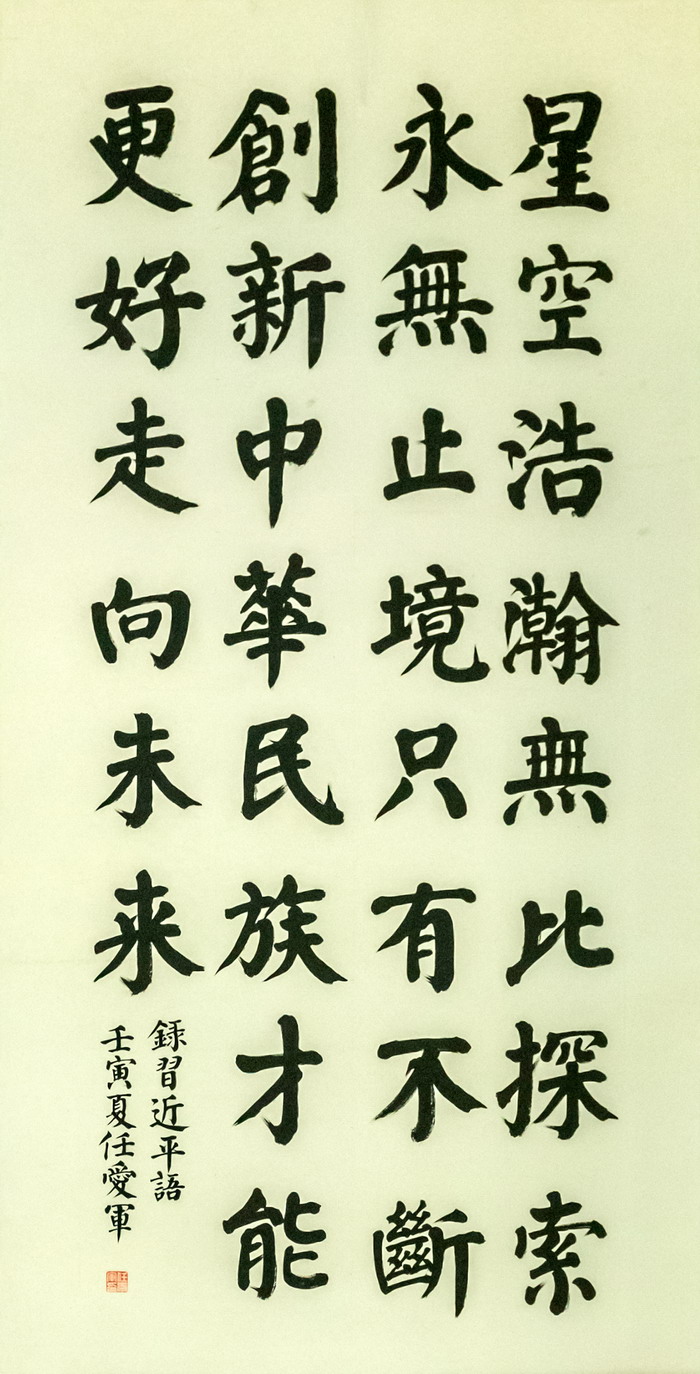 星空浩瀚無比探索
永無止境只有不斷
創新中華民族才能
更好走向未来
録習近平語
壬寅夏任愛軍